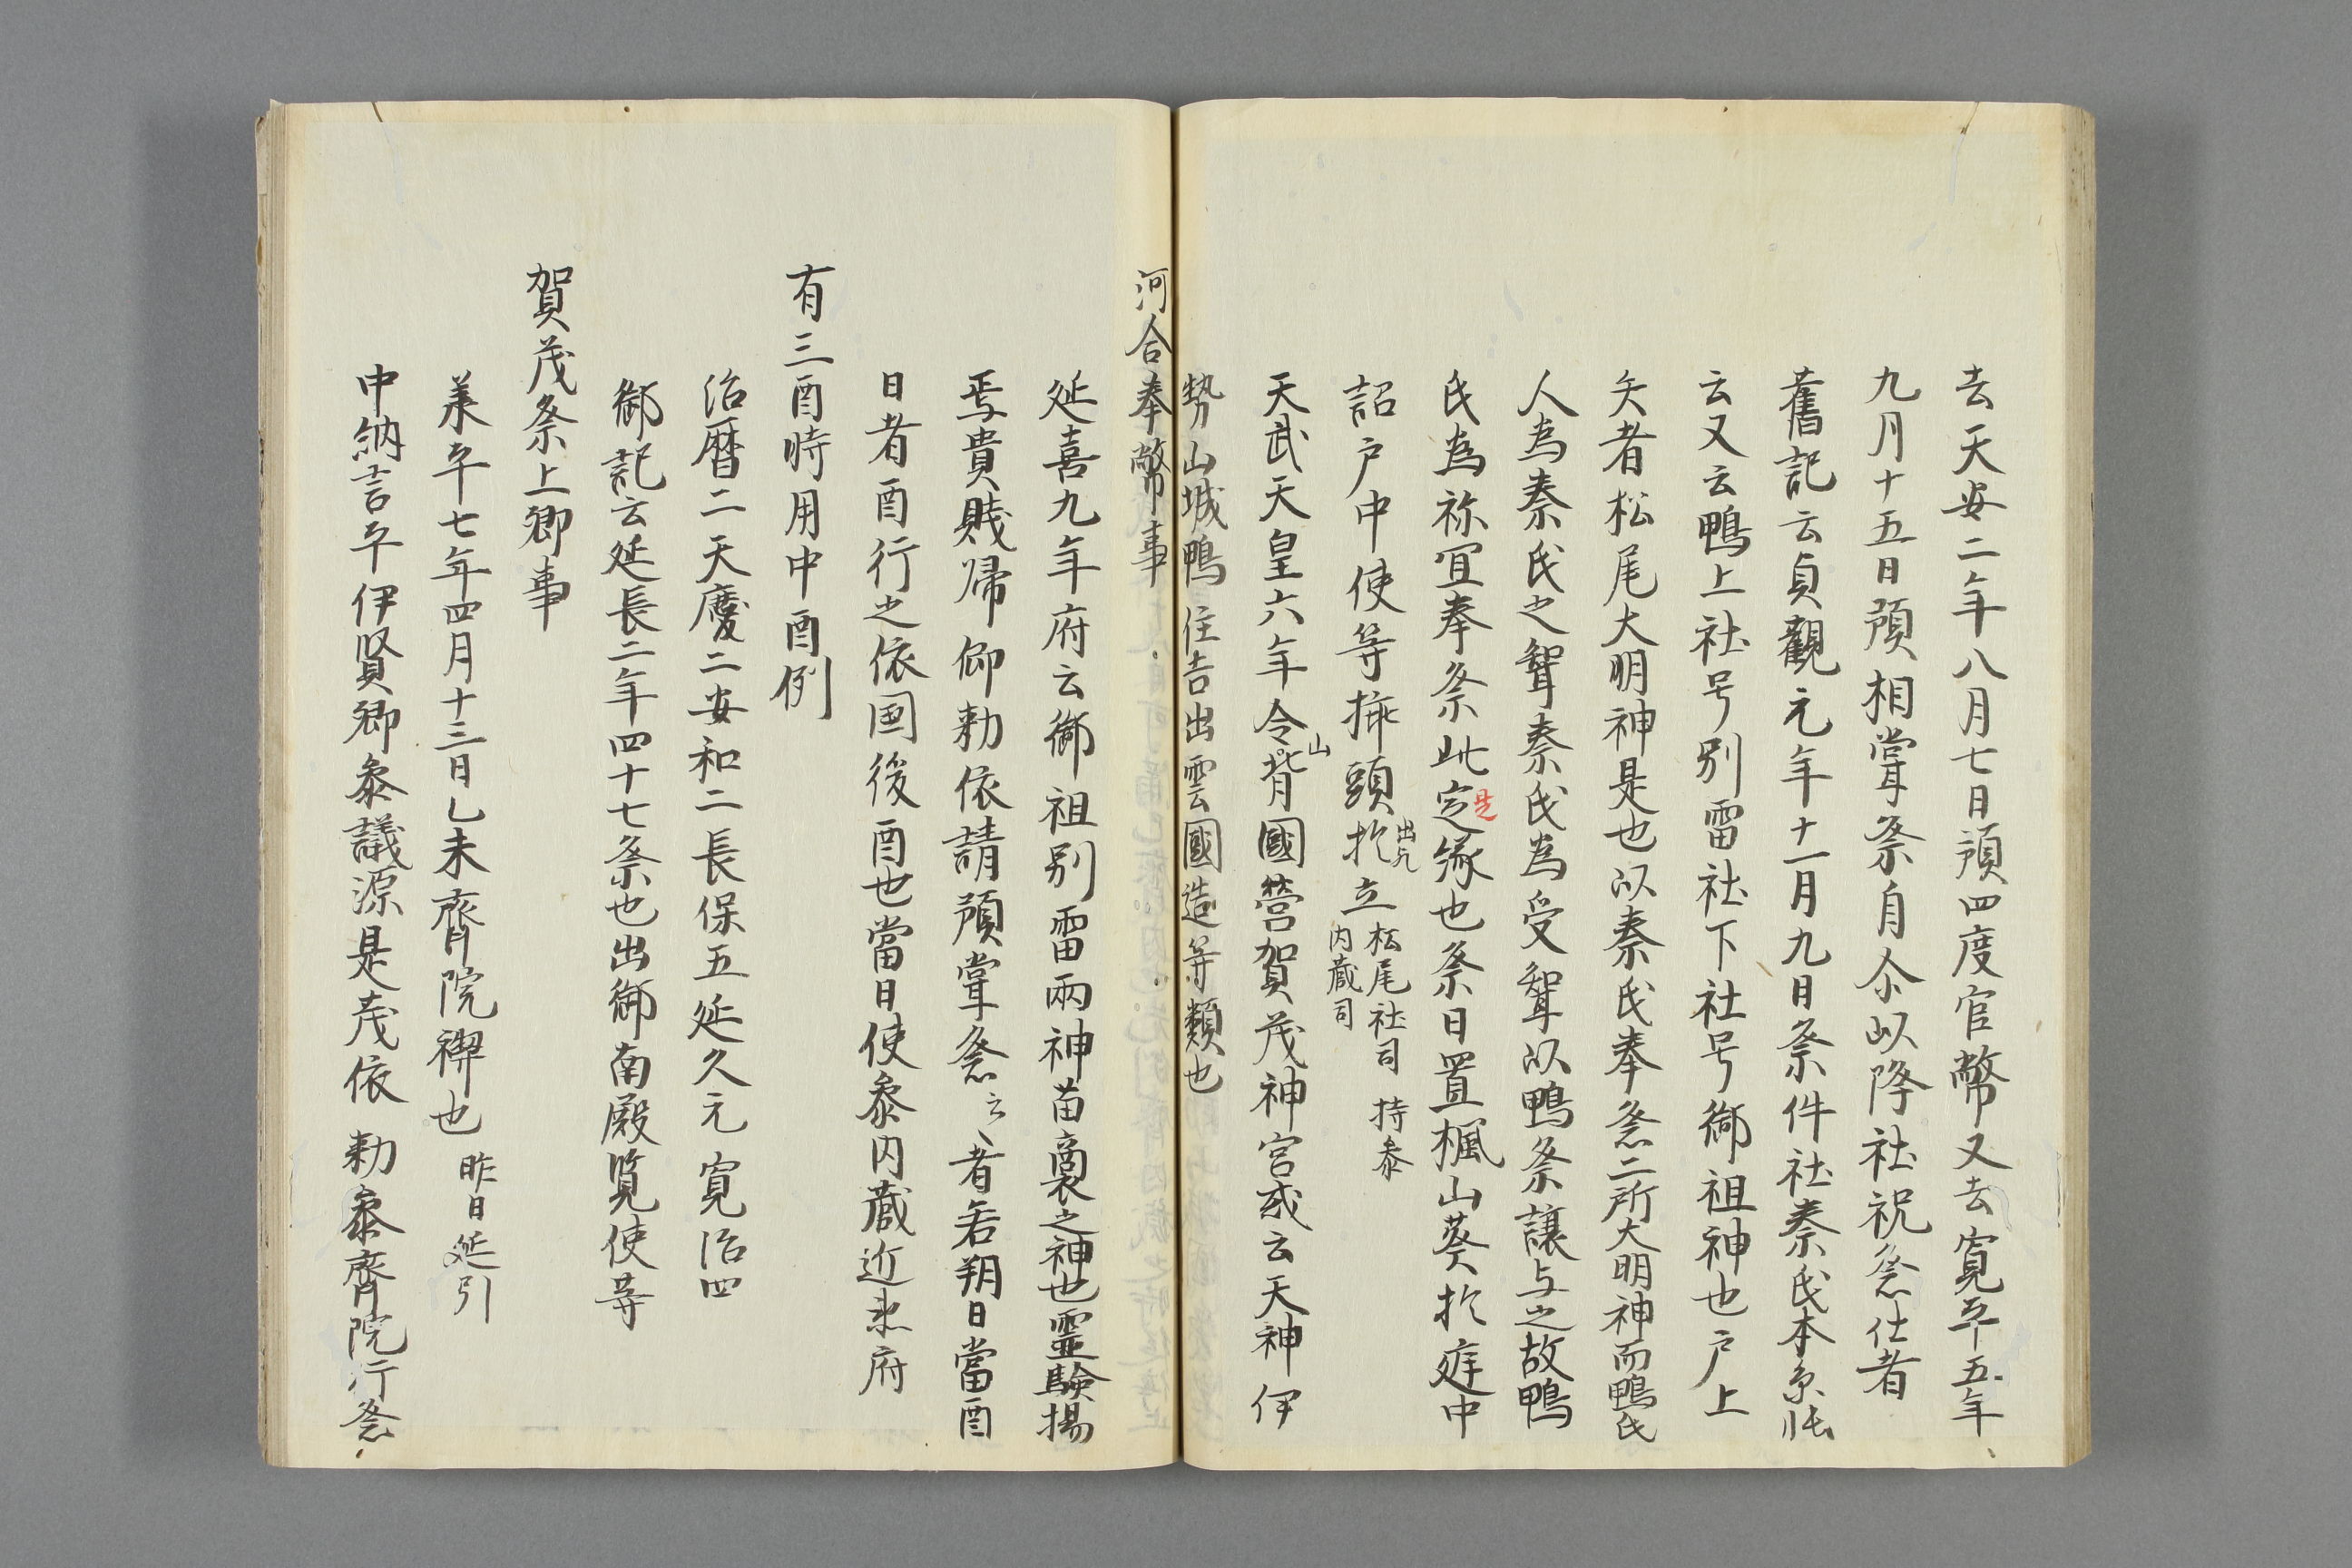 去天安二年八月七日預四度官幣又去寛平五年
九月十五日預相甞祭自尒以降社祝祭仕者
舊記云貞觀元年十一月九日祭件社秦氏本系帳
云又云鴨上社号別雷社下社号御祖神也戸上
矢者松尾大明神是也以秦氏奉祭二所大明神而鴨氏
人為秦氏之聟秦氏為受聟以鴨祭譲与之故鴨
氏為祢宜奉祭此定縁也祭日置楓山葵於庭中
是
詔戸中使等挿頭於立
出九
松尾社司持参
内蔵司
天武天皇六年令背國営賀茂神宮或云天神伊
山
勢山城鴨住吉出雲國造等類也
河合奉幣事
延喜九年府云御祖別雷兩神苗裔之神也霊驗揚
焉貴賎帰仰勅依請預甞祭云々者若朔日當酉
日者酉行之依国後酉也當日使叅内蔵近来府
有三酉時用中酉例
治暦二天慶二安和二長保五延久元寛治四
御記云延長二年四十七祭也出御南殿覧使等
賀茂祭上卿事
義平七年四月十三日乙未齊院禊也昨日延引
中納言平伊賢卿叅議源是茂依勅叅齊院行祭